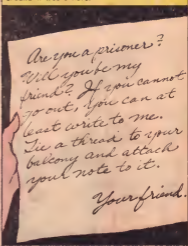 Are you a prisoner?
Will you be my
friend? If you cannot
go out, you can at
least write to me.
Tie a thread to your
balcony and attach
your note to it.
Your friend.